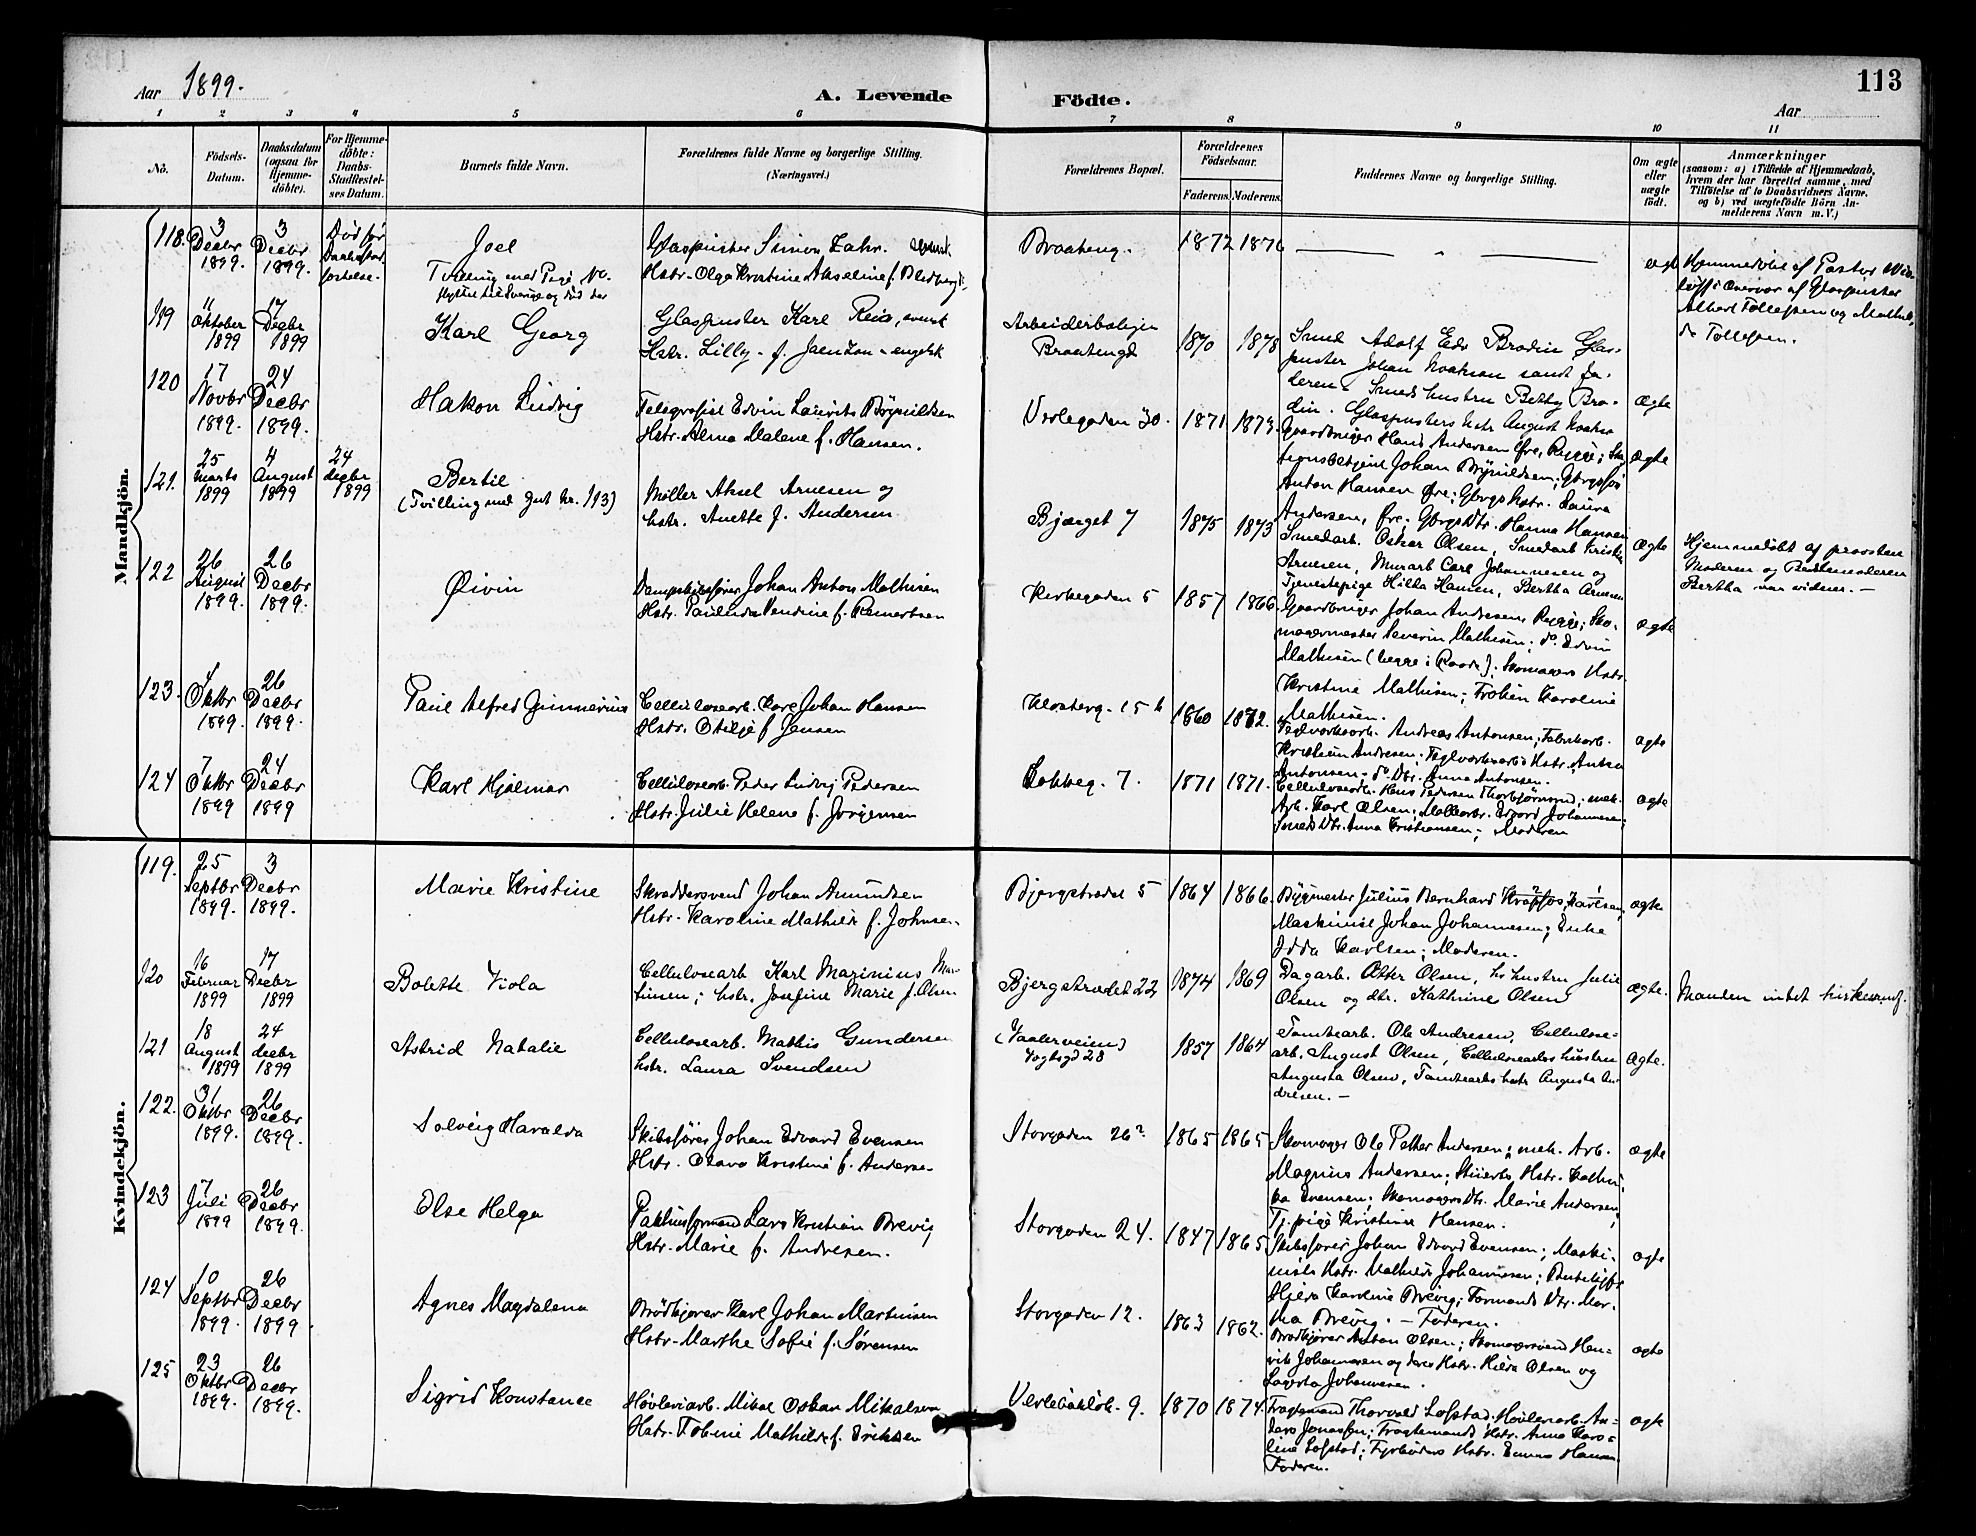 113
Aar 1899.
A. Levende Födte.
Aar
1 2 3 4 5 6 7 8 9 10 11
No.
Födsels-Datum.
Daabsdatum (ogsaa for Hjemme-döbte).
For Hjemme-döbte: Daabs-Stadfæstel-ses Datum.
Barnets fulde Navn.
Forældrenes fulde Navne og borgerlige Stilling. (Næringsvei.)
Forældrenes Bopæl.
Forældrenes Födselsaar.
Faderens. Moderens.
Faddernes Navne og borgerlige Stilling.
Om ægte eller uægte födt.
Anmærkninger
(saasom: a) i Tilfælde af Hjemmedaab, hvem der har forrettet samme, med Tilföielse af to Daabsvidners Navne. og b) ved uægtefödte Börn An-melderens Navn m. V.)
Mandkjön.
118. 3 Decbr 1899. 3 Decbr 1899. Död før
Joel
Tvilling med Pige No.
flyttet til Sverige og död der
Glaspuster Simon Zahr.
Hstr. Olga Kristine Akseline f.
Braateng. 1872 1876
ægte
Hjemmedöbt af Pastor
Overvær af Glaspuster
Albert Tollefsen og
Tollefsen.
119 11 Oktober 1899 17 Decbr 1899
Karl Georg
Glaspuster Karl svensk
Hstr. Lilly f. engelsk
Arbeiderboligen
Braatengd 1870 1878
Smed Adolf Edv. Brodin Glas-
puster Johan samt fa-
deren. Smeds hustru Betty Bro-
din. Glaspusters hstr August
Ægte
120 17 Novbr 1899. 24 Decbr 1899.
Hakon Ludvig
Telegrafist Edvin Laurits Brynildsen
Hstr. Alma Malene f. Hansen.
Verlegaden 30. 1871 1873.
Gaardbruger Hans Andersen Øre, Rygge; Sta-
tionsbetjent Johan Brynildsen;
Anton Hansen Øre; Hstr. Laura
Andersen, Øre; Dtr. Hanna Hansen
Ægte
121. 25 Marts 1899 4 August 1899 24 decbr 1899
Bertil
(Tvilling med Gut Nr. 113)
Møller Aksel Arnesen og
hstr. Anette f. Andersen
Bjerget 7 1875 1873
Smedarb. Oskar Olsen, Smedarb Kristian
Arnesen, Murarb Carl Johannesen og
Tjenestepige Hilda Hansen, Bertha Arnesen
Ægte
Hjemmedöbt af provsten
Moderen og Bestemoderen
Bertha var vidner. —
122 26 August 1899. 26 Decbr 1899.
Øivin
Dampskibsfører Johan Anton Mathisen
Hstr. Paulinda Vendine f. Reinertsen
Kirkegaden 5 1857 1866.
Gaardbruger Johan Andresen, Rygge; Sko-
magermester Severin Mathisen; do Edvin
Mathisen (begge i Raade); Skomagers Hstr.
Kristine Mathisen; Frøken Karoline
Mathisen.
ægte
123. Oktbr 1899. 26 Decbr 1899.
Paul Alfred Gunnerius
Cellulosearb. Karl Johan Hansen
Hstr. Otilje f Jensen
Klosterg. 15 b 1860 1872.
Teglværksarb. Andreas Antonsen; Fabrikarb.
Kristian Andresen; Teglværksarbs Hstr. Antea
Antonsen. do. Dtr. Anna Antonsen.
ægte
124 7 Oktbr 1899 24 Decbr 1899
Karl Hjalmar
Cellulosearb. Peder Ludvig Pedersen
Hstr. Julie Helene f. Jorgensen
7. 1871 1871.
Cellulosearb. Hans Pedersen Thorbjørnsrud; mek.
Arb. Karl Olsen; Møllearbr. Edvard Johannesen;
Smeds Dtr. Anna Kristiansen; Moderen
ægte
Kvindekjön.
119. 25 Septbr 1899. 3 Decbr 1899.
Marie Kristine
Skræddersvend Johan Amundsen
Hstr. Karoline Mathilde f. Johnsen.
Bjergstrædet 5 1864 1866.
Bygmester Julius Bernhard Karlsen,
Maskinist Johan Johannesen; Enke
Idda Karlsen; Moderen.
ægte
120 16 Februar 1899 17 Decbr 1899
Bolette Viola
Cellulosearb Karl Marinius Mar-
tinsen; hstr. Josefine Marie f. Olsen
Bjergstrædet 22 1874 1869
Dagarb. Otter Olsen, hs hustru Julie
Olsen og dtr. Kathrine Olsen
ægte.
Manden intet
121 18 August 1899 24 decbr 1899
Astrid Natalie
Cellulosearb. Mathis Gundersen
hstr. Laura Svendsen
(Vaalerveien)
Vogtsgd 28 1857 1864
Tomtearb. Ole Andresen, Cellulose-
arb. August Olsen, Cellulosearbs hustru
Augusta Olsen, Tomtearbs hstr Augusta An-
dresen. —
Ægte.
122. 31 Oktbr 1899. 26 Decbr 1899.
Solveig Haralda
Skibsfører Johan Edvard Evensen
Hstr. Olava Kristine f. Anderse-
Storgaden 26 1865 1865
Skomager Ole Petter Andersen; mek. Arb.
Magnus Andersen; Stuerts Hstr. Kathin-
ka Evensen; Skomagers Dtr. Marie Andersen;
Tj.pige Kristine Hansen.
ægte
123 7 Juli 1899 26 Decbr 1899.
Else Helga
Pakhusformand Lars Kristian Brevig
Hstr. Marie f. Andresen.
Storgaden 24. 1847 1865
Skibsfører Johan Edvard Evensen; Maski-
nists Hstr. Mathilde Johannesen;
Hjelda Karoline Brevig; Formands Dtr. Mar-
tha Brevig. — Faderen.
ægte
124 10 Septbr 1899. 26 Decbr 1899.
Agnes Magdalena
Brödkjører Karl Johan Martinsen
Hstr. Marthe Sofie f. Sørensen
Storgaden 12. 1863 1862.
Brødkjører Anton Olsen; Skomagersvend Hen-
rik Johannesen og deres Hstr. Hilda Olsen og
Lagerta Johannesen.
ægte
125 23 Oktbr 1899. 26 Decbr 1899.
Sigrid Konstance
Høvleriarb. Mikal Oskar Mikalsen
Hstr. Tobine Mathilde f. Eriksen
9. 1870 1874.
Fragtemand Thorvald Lofstad; Høvleriarb. An-
ders Jonassen; Fragtemands Hstr. Anna Karo-
line Lofstad; Fyrbøders Hstr. Emma Hansen
Faderen.
ægte